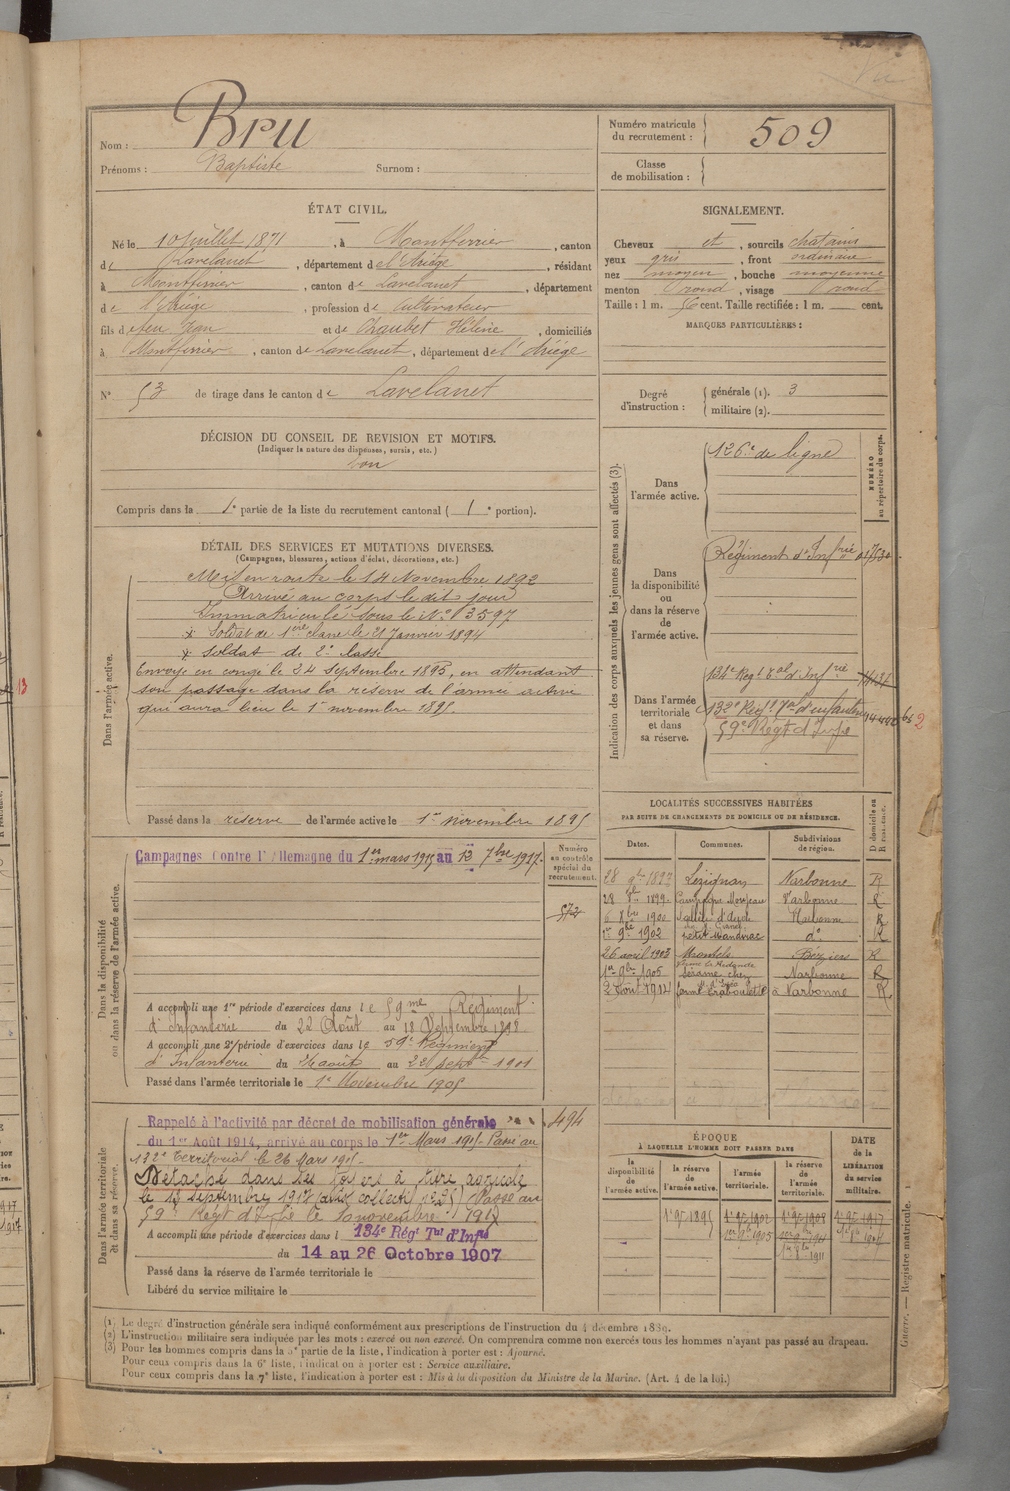 Nom : Bru
Prénoms : Baptiste Surnom :
Numéro matricule du recrutement : 509
Classe de mobilisation :
ÉTAT CIVIL.
Né le 10 Juillet 1871, à Montferrier, canton
de Lavelanet, département de l'Ariège, résidant
à Montferrier, canton de Lavelanet, département
de l'Ariège, profession de Cultivateur
fils de feu Jean et de Chaubet Hélène, domiciliés
à Montferrier, canton de Lavelanet, département de l'Ariège
N° 53 de tirage dans le canton de Lavelanet
SIGNALEMENT.
Cheveux et, sourcils chatains
yeux gris, front ordinaire
nez moyen, bouche moyenne
menton rond, visage rond
Taille : 1 m. 56 cent. Taille rectifiée : 1 m. cent.
MARQUES PARTICULIÈRES :
Degré d'instruction : générale (1). 3
militaire (2).
DÉCISION DU CONSEIL DE REVISION ET MOTIFS.
(Indiquer la nature des dispenses, sursis, etc.)
bon
Compris dans la 1e partie de la liste du recrutement cantonal ( 1e portion).
DÉTAIL DES SERVICES ET MUTATIONS DIVERSES.
(Campagnes, blessures, actions d'éclat, décorations, etc.)
Dans l'armée active.
Mis en route le 14 Novembre 1892
Arrivé au corps le dit jour
Immatriculé sous le N° 3597
Soldat de 1ère classe le 21 Janvier 1894
Soldat de 2e classe
Envoyé en congé le 24 Septembre 1895, en attendant
son passage dans la réserve de l'armée active
qui aura lieu le 1er novembre 1895.
Passé dans la réserve de l'armée active le 1er novembre 1895
Indication des corps auxquels les jeunes gens sont affectés (3).
NUMÉRO au répertoire du corps.
Dans l'armée active.
126e de ligne
Dans la disponibilité ou dans la réserve de l'armée active.
Régiment d'Infrie
Dans l'armée territoriale et dans sa réserve.
134e Régt Tal d'Infrie
132e Régt Tal d'infanterie
59e Régt d'Infie
2
13
LOCALITÉS SUCCESSIVES HABITÉES
PAR SUITE DE CHANGEMENTS DE DOMICILE OU DE RÉSIDENCE.
Dates. Communes. Subdivisions de région. D domicile ou R résidence.
28 9bre 1897 Lézignan Narbonne R
28 8bre 1899 Narbonne R
6 8bre 1900 Narbonne R
1er 9bre 1902 Petit Mandirac do R
26 avril 1903 Montels Béziers R
1er 9bre 1905 Narbonne R
2 Août 1914 Narbonne R
Dans la disponibilité ou dans la réserve de l'armée active.
Campagnes Contre l'Allemagne du 1er mars 1915 au 12 7bre 1917.
Numéro au contrôle spécial du recrutement.
572
A accompli une 1re période d'exercices dans le 59me Régiment
d'Infanterie du 22 Août au 18 Septembre 1898
A accompli une 2e période d'exercices dans le 59e Régiment
d'Infanterie du 26 août au 22 septe 1901
Passé dans l'armée territoriale le 1er Novembre 1905
Dans l'armée territoriale et dans sa réserve.
Rappelé à l'activité par décret de mobilisation générale
du 1er Août 1914, arrivé au corps le 1er Mars 1915. Passé au
132e Territorial le 26 Mars 1915.
Détaché dans ses foyers à titre agricole
le 13 septembre 1917 Passé au
59e Régt d'Infie le 10 novembre 1917
A accompli une période d'exercices dans l 134e Régt Tal d'Infie
du 14 au 26 Octobre 1907
Passé dans la réserve de l'armée territoriale le
Libéré du service militaire le
494
ÉPOQUE
À LAQUELLE L'HOMME DOIT PASSER DANS
la disponibilité de l'armée active. la réserve de l'armée active. l'armée territoriale. la réserve de l'armée territoriale. DATE de la LIBÉRATION du service militaire.
1er 9bre 1895
(1) Le degré d'instruction générale sera indiqué conformément aux prescriptions de l'instruction du 4 décembre 1889.
(2) L'instruction militaire sera indiquée par les mots : exercé ou non exercé. On comprendra comme non exercés tous les hommes n'ayant pas passé au drapeau.
(3) Pour les hommes compris dans la 5e partie de la liste, l'indication à porter est : Ajourné.
Pour ceux compris dans la 6e liste, l'indication à porter est : Service auxiliaire.
Pour ceux compris dans la 7e liste, l'indication à porter est : Mis à la disposition du Ministre de la Marine. (Art. 4 de la loi.)
Guerre. — Registre matricule.